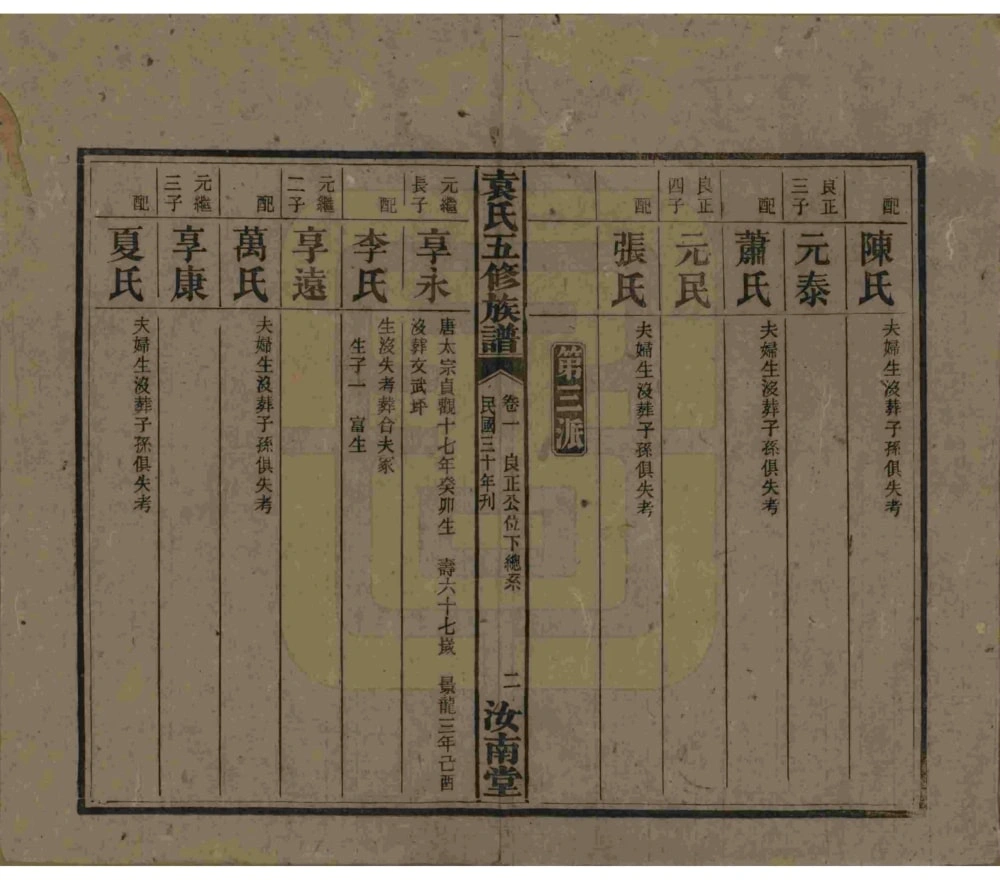 配
陳氏
夫婦生沒葬子孫俱失考
良正三子
元泰
配
蕭氏
夫婦生沒葬子孫俱失考
良正四子
元民
配
張氏
夫婦生沒葬子孫俱失考
第三派
袁氏五修族譜
卷一 良正公位下總系 二
民國三十年刊
汝南堂
元繼長子
享永
唐太宗貞觀十七年癸卯生 壽六十七歲 景龍三年己酉
沒葬文武坪
配
李氏
生沒失考葬合夫冢
生子一 富生
元繼二子
享遠
配
萬氏
夫婦生沒葬子孫俱失考
元繼三子
享康
配
夏氏
夫婦生沒葬子孫俱失考